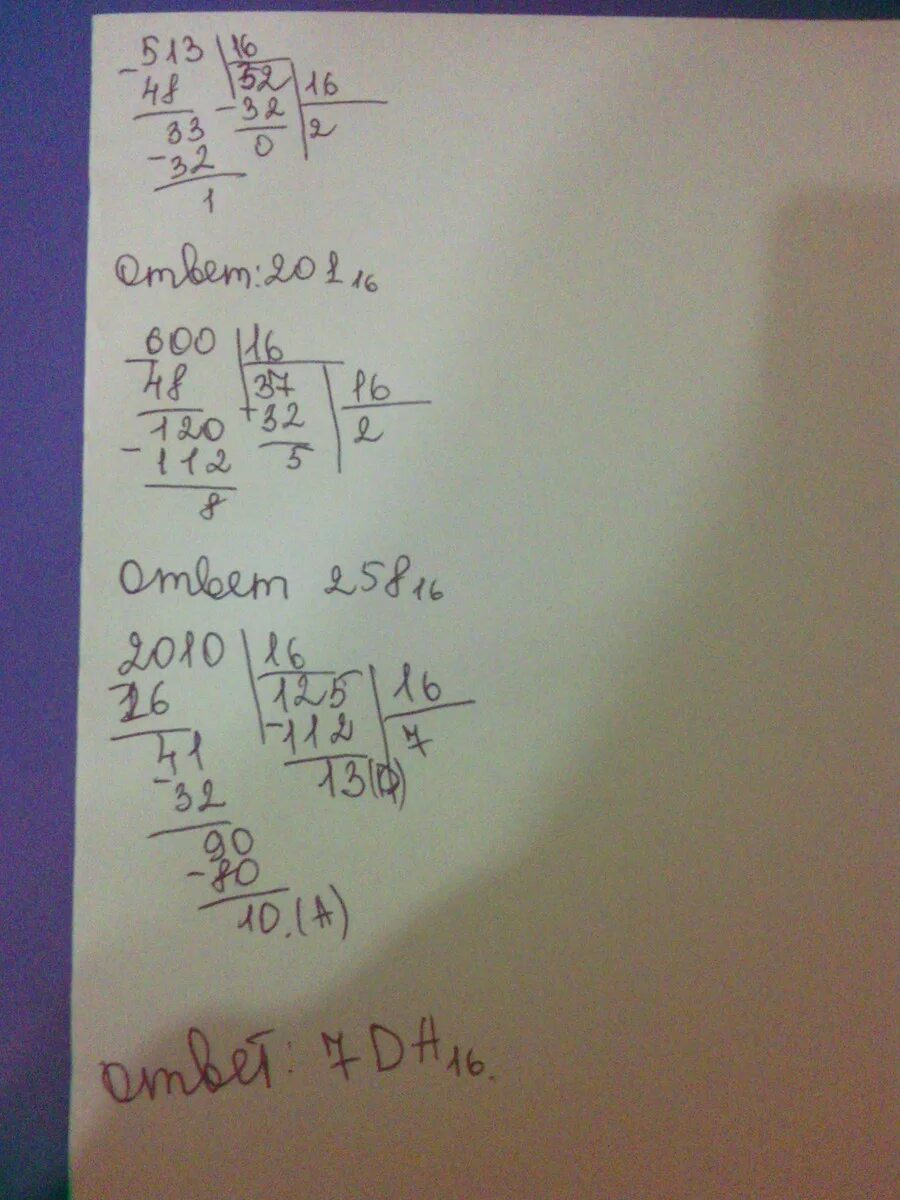 -513 |16
48 32 |16
33 -32 2
-32 0
1
Ответ: 201₁₆
-600 |16
48 37 |16
-120 -32 2
112 5
8
Ответ 258₁₆
-2010 |16
16 125 |16
41 -112 7
-32 13(D)
90
-80
10.(A)
Ответ: 7DA₁₆.